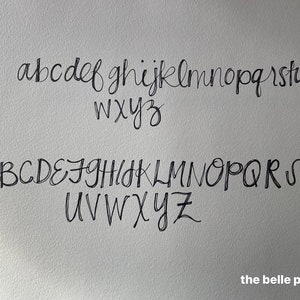 abcdefghijklmnopqrstu
wxyz
ABCDEFGHIJKLMNOPQRS
UVWXYZ
the belle p